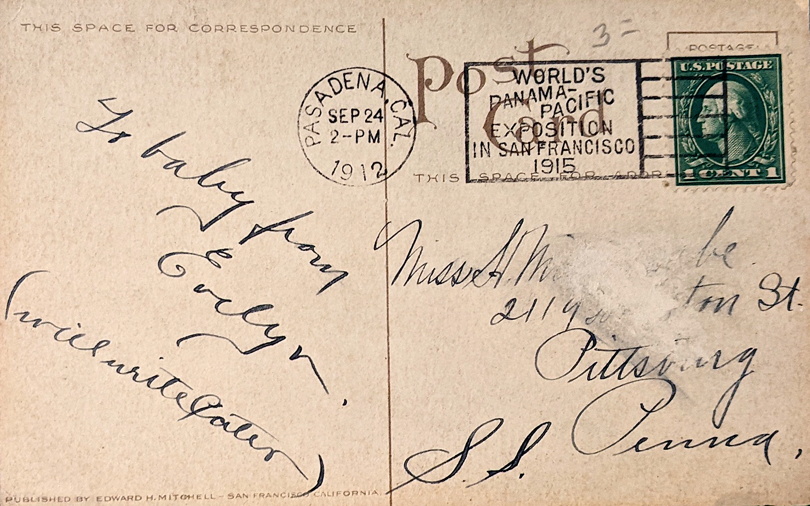 THIS SPACE FOR CORRESPONDENCE
To baby from
Evelyn.
(will write later)
PUBLISHED BY EDWARD H. MITCHELL - SAN FRANCISCO, CALIFORNIA.
PASADENA, CAL.
SEP 24
2-PM
1912
3=
Post
Card
WORLD'S
PANAMA-
PACIFIC
EXPOSITION
IN SAN FRANCISCO
1915
POSTAGE
U.S. POSTAGE
1 CENT 1
THIS SPACE FOR
Miss
2119 St.
Pittsburg
S.S. Penna.